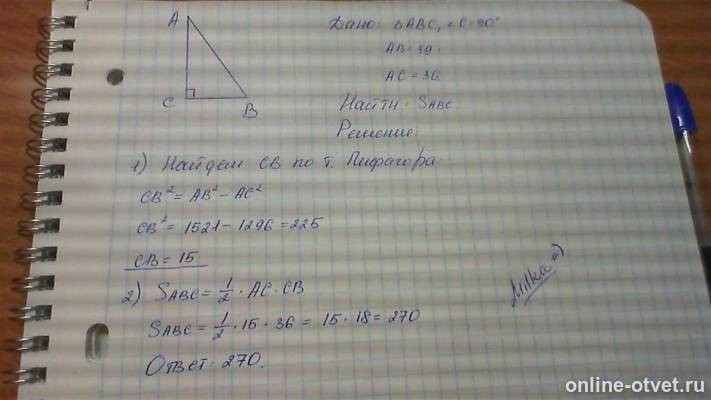 A
C
B
Дано: △ABC, ∠C=90°
AB=39.
AC=36.
Найти: SABC.
Решение:
1) Найдем CB по т. Пифагора:
CB² = AB² − AC²
CB² = 1521 − 1296 = 225
CB = 15
2) SABC = 1/2 · AC · CB
SABC = 1/2 · 15 · 36 = 15 · 18 = 270
Ответ: 270.
Milka =)
online-otvet.ru